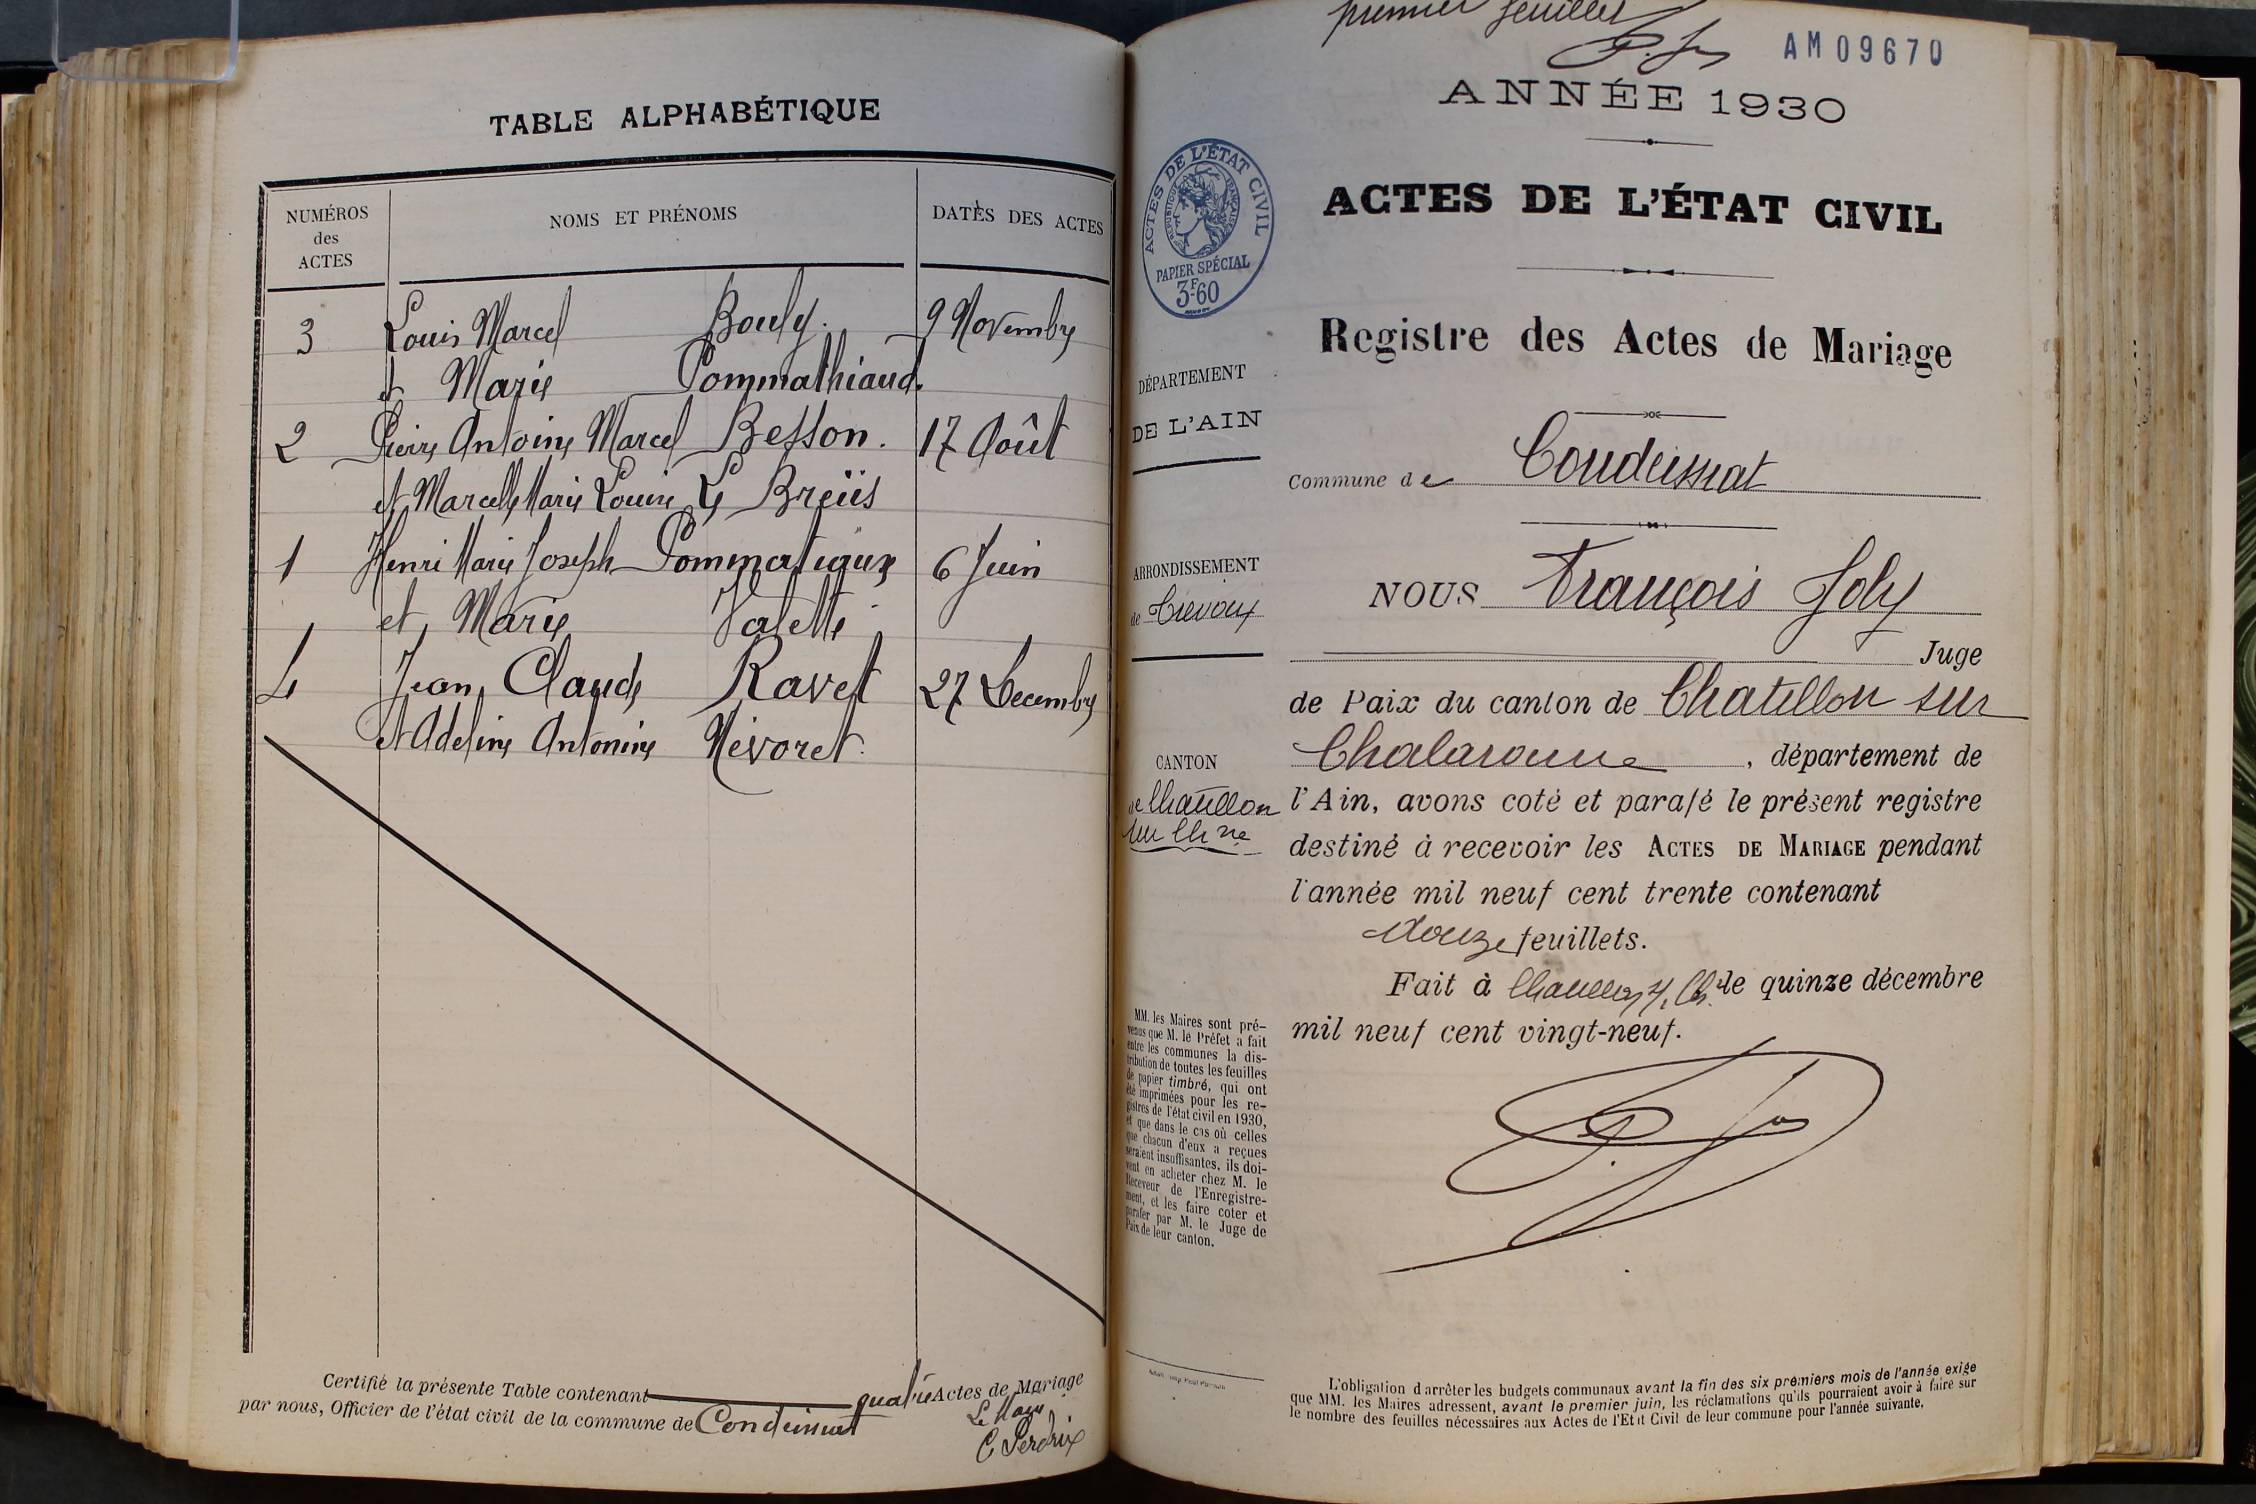 TABLE ALPHABÉTIQUE
NUMÉROS des ACTES
NOMS ET PRÉNOMS
DATES DES ACTES
3 Louis Marcel Bouly. 9 Novembre
et Marie Pommathiaud.
2 Pierre Antoine Marcel Besson. 17 Août
et Marcelle Marie Louise Le Breüs
1 Henri Marie Joseph Pommatiaux 6 Juin
et Marie Valette
4 Jean Claude Ravet 27 Decembre
et Adeline Antonine Névoret.
Certifié la présente Table contenant quatre Actes de Mariage
par nous, Officier de l'état civil de la commune de Condeissiat
Le Maire
C Perdrix
premier feuillet
AM09670
ANNÉE 1930
ACTES DE L'ÉTAT CIVIL
RÉPUBLIQUE FRANÇAISE
PAPIER SPÉCIAL
3F60
ACTES DE L'ÉTAT CIVIL
Registre des Actes de Mariage
DÉPARTEMENT
DE L'AIN
Commune de Condeissiat
ARRONDISSEMENT
de Trévoux
NOUS François Joly
Juge
de Paix du canton de Chatillon sur
Chalaronne, département de
CANTON
de Chatillon
sur Chne
l'Ain, avons coté et parafé le présent registre
destiné à recevoir les ACTES DE MARIAGE pendant
l'année mil neuf cent trente contenant
douze feuillets.
Fait à Chatillon s/ Ch. le quinze décembre
mil neuf cent vingt-neuf.
MM. les Maires sont pré-
venus que M. le Préfet a fait
entre les communes la dis-
tribution de toutes les feuilles
de papier timbré, qui ont
été imprimées pour les re-
gistres de l'état civil en 1930,
et que dans le cas où celles
que chacun d'eux a reçues
seraient insuffisantes, ils doi-
vent en acheter chez M. le
Receveur de l'Enregistre-
ment, et les faire coter et
parafer par M. le Juge de
Paix de leur canton.
L'obligation d'arrêter les budgets communaux avant la fin des six premiers mois de l'année exige
que MM. les Maires adressent, avant le premier juin, les réclamations qu'ils pourraient avoir à faire sur
le nombre des feuilles nécessaires aux Actes de l'Etat Civil de leur commune pour l'année suivante.